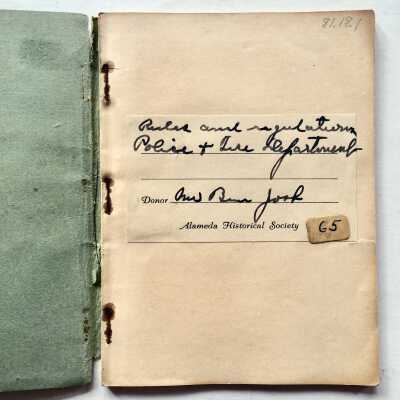 81.18.1
Rules and regulations
Police + Fire Department
Donor Mr Ben
Alameda Historical Society
65